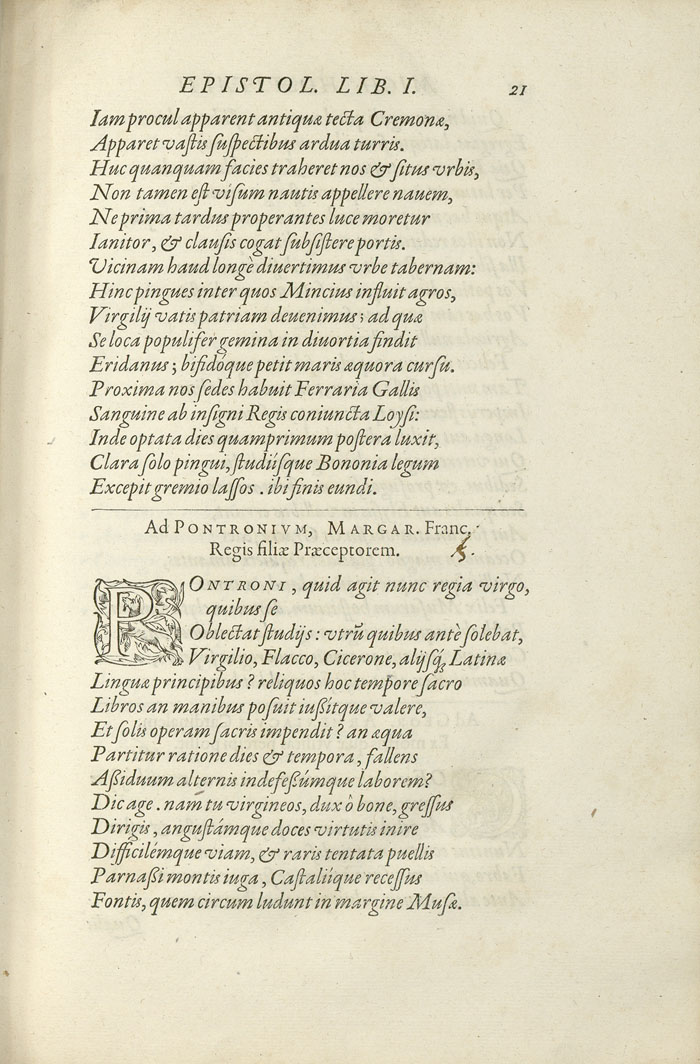 EPISTOL. LIB. I. 21
Iam procul apparent antiquæ tecta Cremonæ,
Apparet vastis suspectibus ardua turris.
Huc quanquam facies traheret nos & situs vrbis,
Non tamen est visum nautis appellere nauem,
Ne prima tardus properantes luce moretur
Ianitor, & clausis cogat subsistere portis.
Vicinam haud longè diuertimus vrbe tabernam:
Hinc pingues inter quos Mincius influit agros,
Virgilij vatis patriam deuenimus; ad quæ
Se loca populifer gemina in diuortia findit
Eridanus; bifidóque petit maris æquora cursu.
Proxima nos sedes habuit Ferraria Gallis
Sanguine ab insigni Regis coniuncta Loysi:
Inde optata dies quamprimum postera luxit,
Clara solo pingui, studiísque Bononia legum
Excepit gremio lassos . ibi finis eundi.
Ad PONTRONIVM, MARGAR. Franc.
Regis filiæ Præceptorem. 5.
PONTRONI, quid agit nunc regia virgo,
quibus se
Oblectat studijs: vtrũ quibus antè solebat,
Virgilio, Flacco, Cicerone, alijsq; Latinæ
Linguæ principibus? reliquos hoc tempore sacro
Libros an manibus posuit iußítque valere,
Et solis operam sacris impendit? an æqua
Partitur ratione dies & tempora, fallens
Aßiduum alternis indefeßúmque laborem?
Dic age . nam tu virgineos, dux ò bone, gressus
Dirigis, angustámque doces virtutis inire
Difficilémque viam, & raris tentata puellis
Parnaßi montis iuga, Castaliíque recessus
Fontis, quem circum ludunt in margine Musæ.